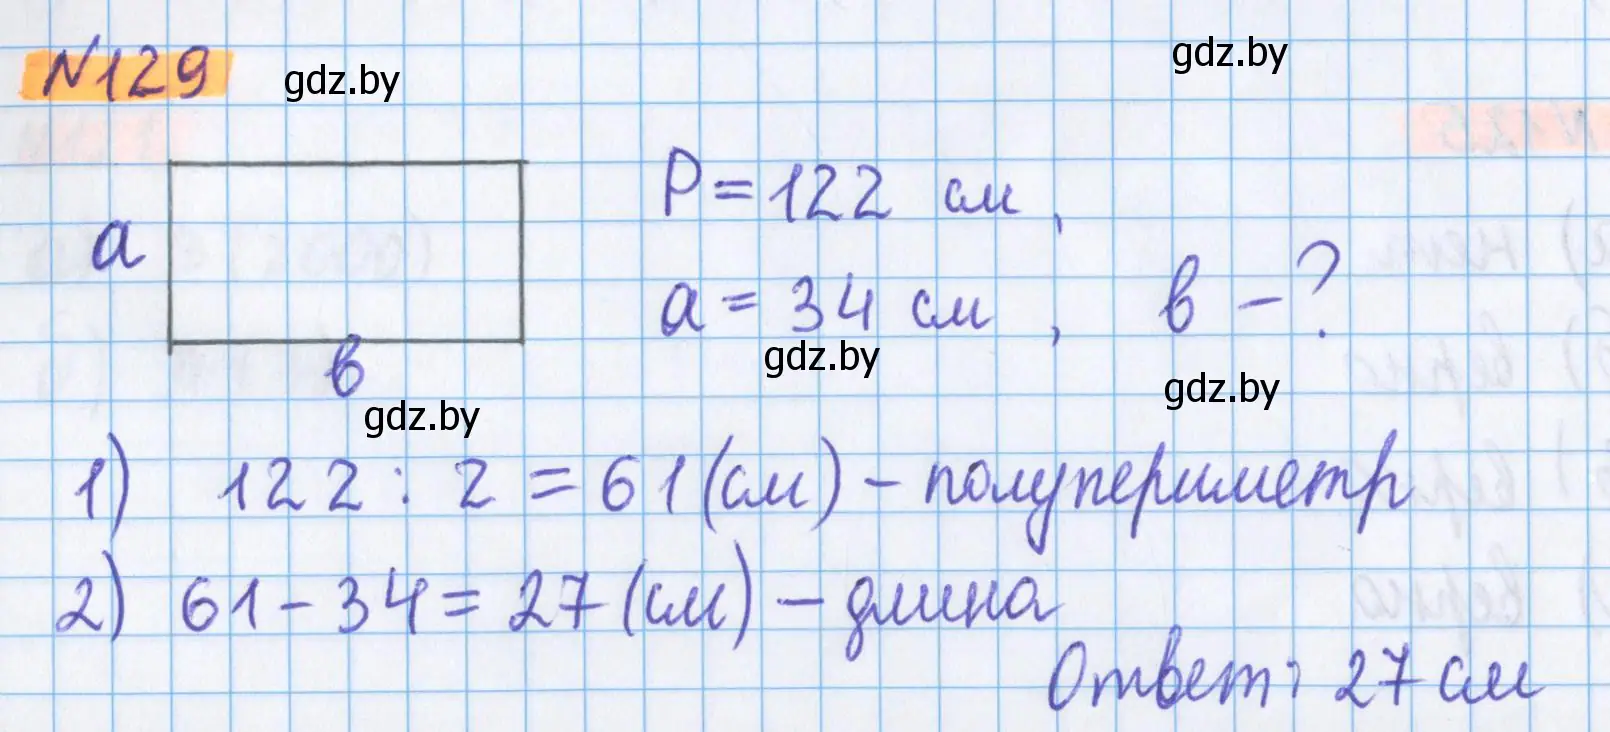 №129
gdz.by
gdz.by
P = 122 см,
a
a = 34 см, в - ?
gdz.by
в
gdz.by
gdz.by
1) 122 : 2 = 61 (см) - полупериметр
2) 61 - 34 = 27 (см) - длина
Ответ: 27 см